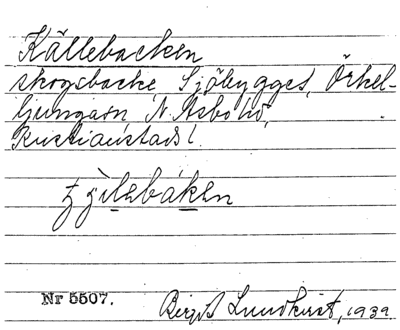 Källebacken
skogsbacke, Sjöbygget, Örkel-
ljungasn, N. Åsbo hd,
Kristianstads l.
Nr 5507. Birgit Lundkvist, 1939.